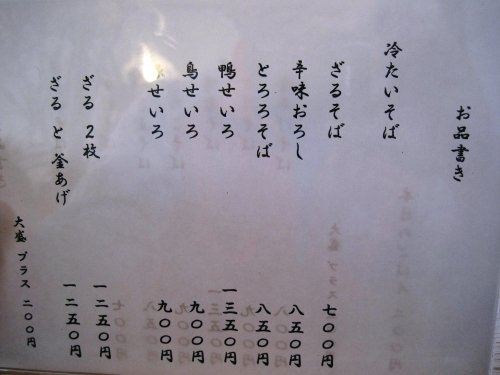 お品書き
冷たいそば
ざるそば 七〇〇円
辛味おろし 八五〇円
とろろそば 八五〇円
鴨せいろ 一三五〇円
鳥せいろ 九〇〇円
せいろ 九〇〇円
ざる 2枚 一二五〇円
ざる と 釜あげ 一二五〇円
大盛 プラス 二〇〇円